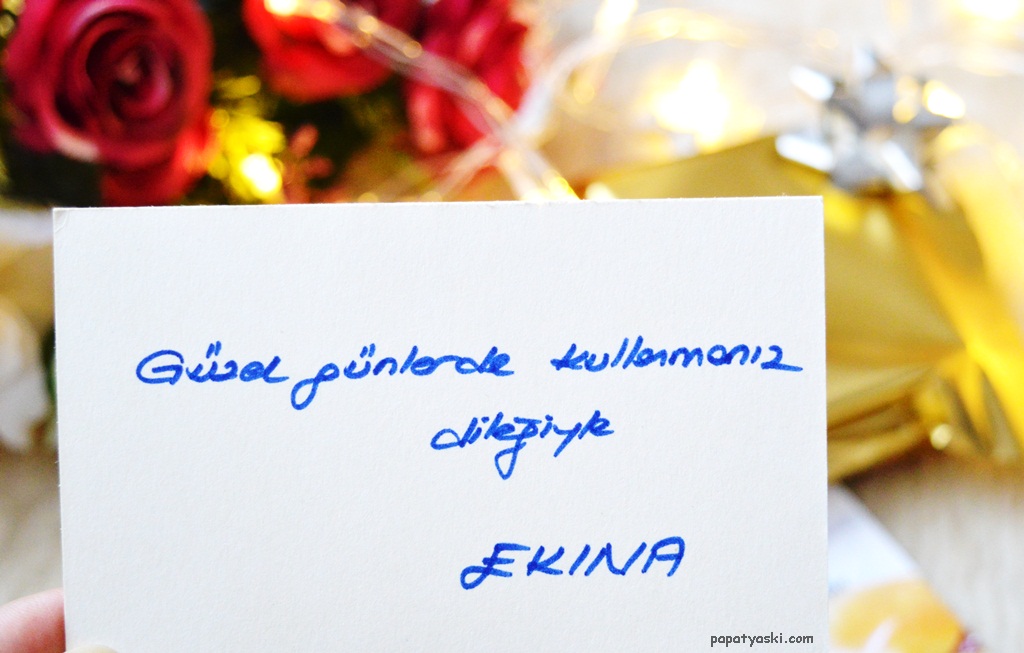 Güzel günlerde kullanmanız
dileğiyle
EKINA
papatyaski.com